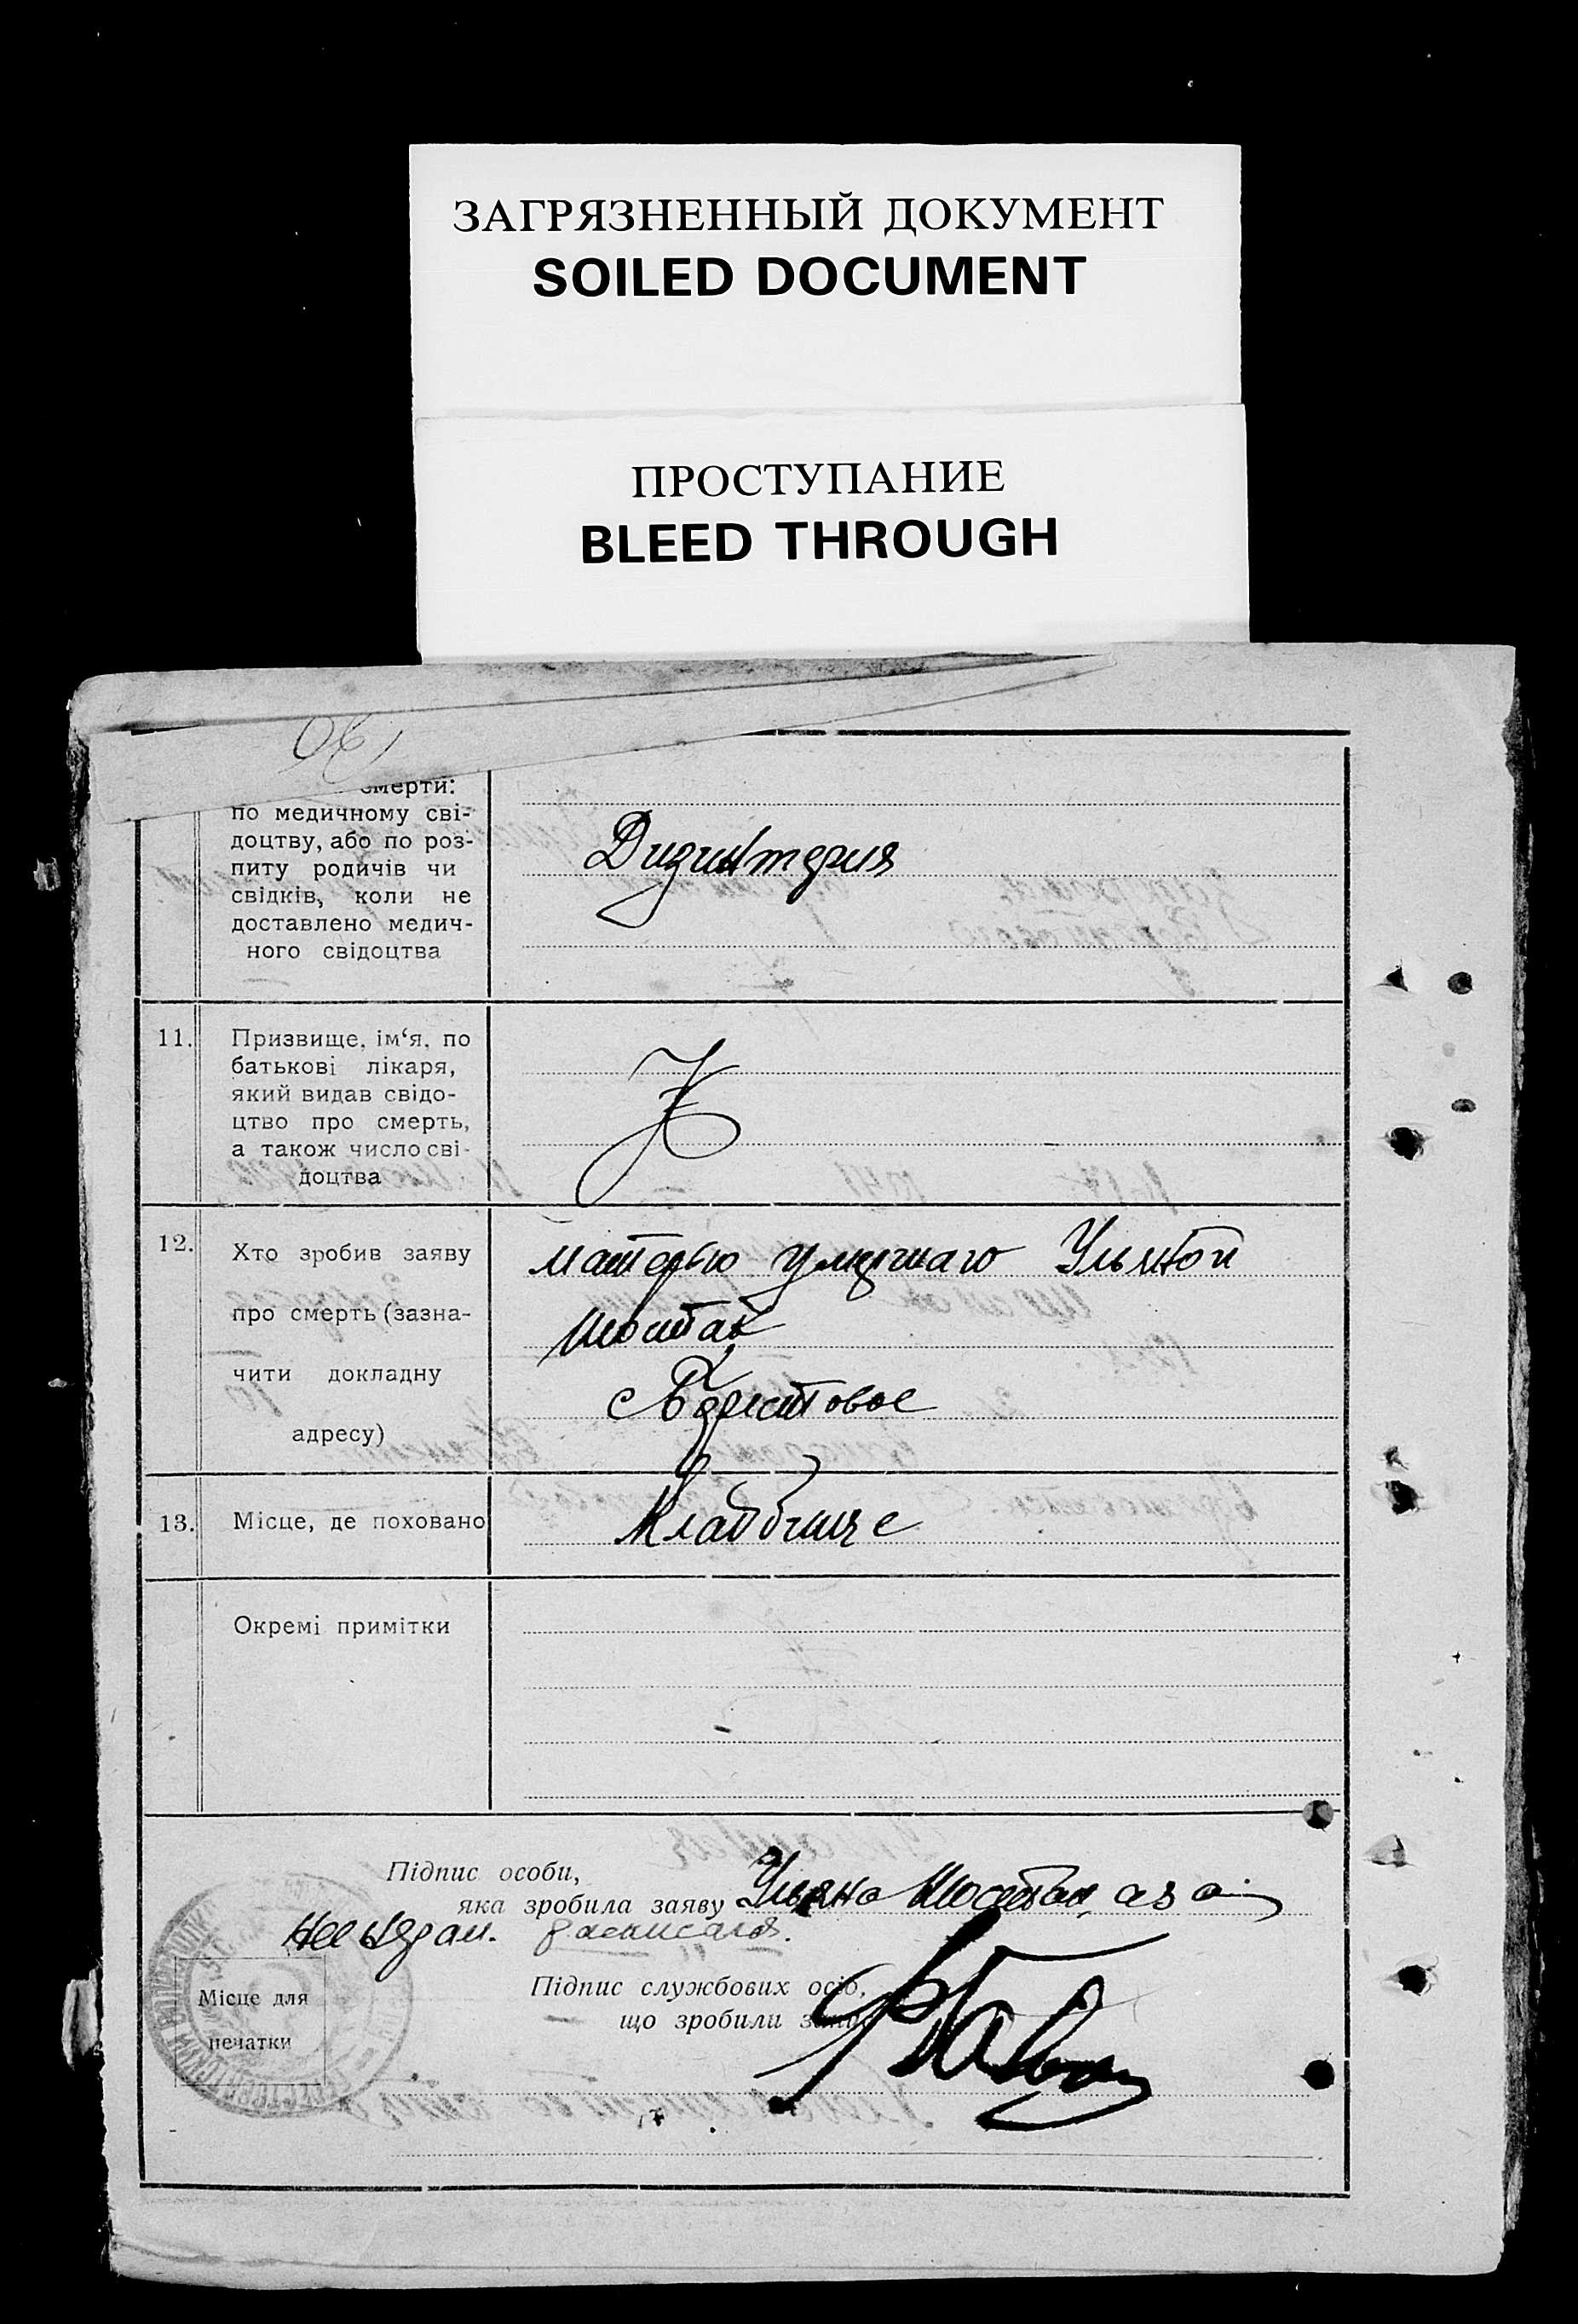 ЗАГРЯЗНЕННЫЙ ДОКУМЕНТ
SOILED DOCUMENT
ПРОСТУПАНИЕ
BLEED THROUGH
смерти:
по медичному сві-
доцтву, або по роз-
питу родичів чи
свідків, коли не
доставлено медич-
ного свідоцтва
Дизинтерия
11.
Призвище, ім‘я, по
батькові лікаря,
який видав свідо-
цтво про смерть,
а також число сві-
доцтва
12.
Хто зробив заяву
про смерть (зазна-
чити докладну
адресу)
Матерью умершаго Ульяной
Шостак
с Берестовое
13.
Місце, де поховано
Кладбище
Окремі примітки
Підпис особи,
яка зробила заяву Ульяна Шостак, а за
расписался.
Підпис службових осіб,
що зробили запис
Місце для
печатки